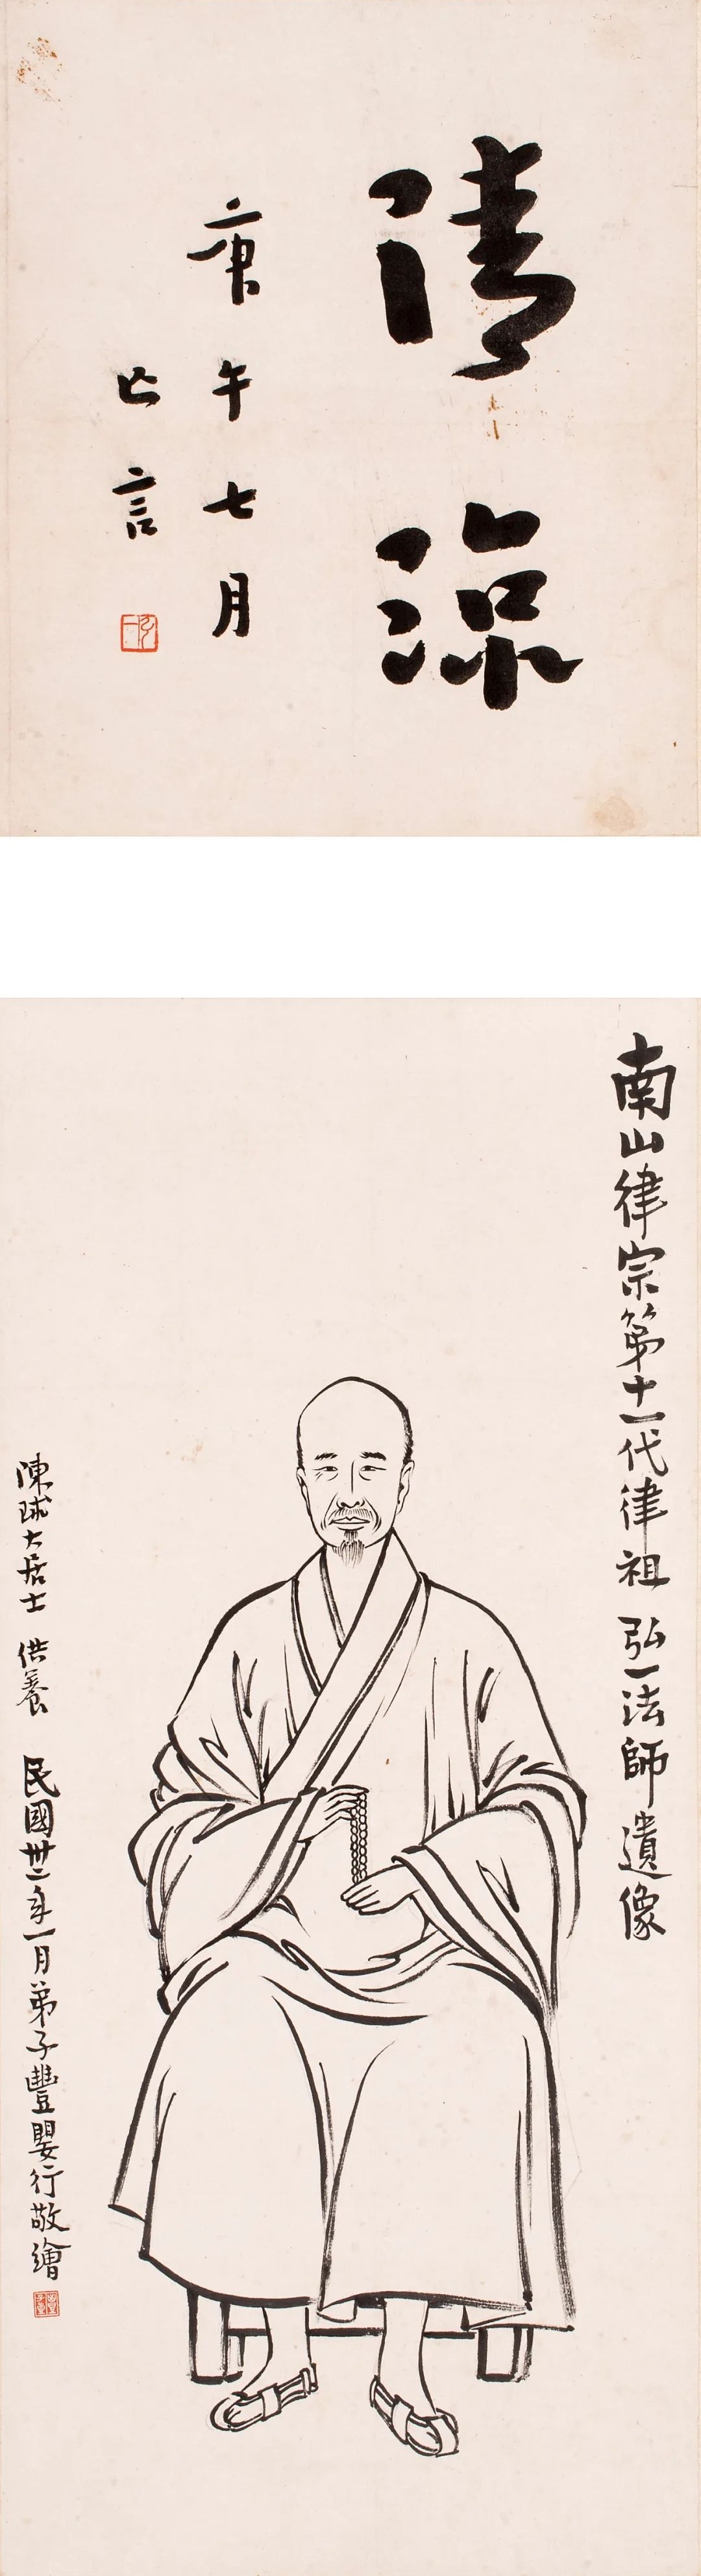 清涼
庚午七月
亡言
弘一
南山律宗第十一代律祖 弘一法師遺像
陳球大居士 供養 民國卅二年一月弟子豐嬰行敬繪